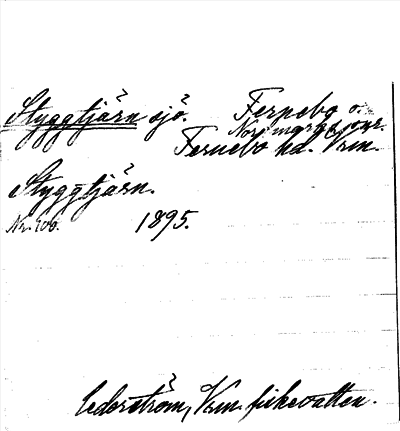 Styggtjärn sjö. Fernebo o.
Nordmarks snr.
Fernebo hd. Vrm.
Styggtjärn.
Nr. 106. 1895.
Cederström, Vrm. fiskevatten.